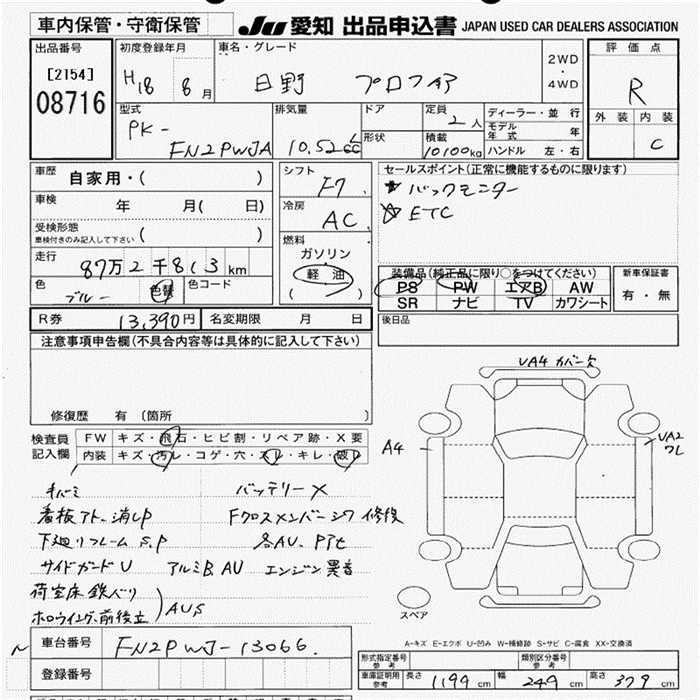 車内保管・守衛保管
JU 愛知 出品申込書 JAPAN USED CAR DEALERS ASSOCIATION
出品番号
[2154]
08716
初度登録年月
H18 8月
車名・グレード
日野 プロフィア
2WD
・
4WD
評価点
R
外装 内装
C
型式
PK-
FN2PWJA
排気量
10.52 L cc
ドア
形状
定員
2人
積載
10100kg
ディーラー・並行
モデル年式 年
ハンドル 左・右
車歴
自家用・( )
車検
年 月( 日)
受検形態
車検付きのみ記入して下さい ( )
走行
87万2千813km
色
ブルー 色替
色コード
シフト
F7
冷房
AC
燃料
ガソリン
軽油
( )
セールスポイント(正常に機能するものに限ります)
バックモニター
ETC
装備品(純正品に限り○をつけてください)
PS PW エアB AW
SR ナビ TV カワシート
新車保証書
有・無
R券 13,390円 名変期限 月 日
後日品
注意事項申告欄(不具合内容等は具体的に記入して下さい)
修復歴 有 〔箇所 〕
検査員
記入欄
FW キズ・飛石・ヒビ割・リペア跡・X要
内装 キズ・汚レ・コゲ・穴・スレ・キレ・破レ
キバミ バッテリーX
看板アト、消しP Fクロスメンバーシワ修復
下廻りフレームS.P 各AU、Pサビ
サイドガードU アルミB AU エンジン異音
荷室床鉄ハリ
ホロウイング、前後立 ) AUS
VA4 カバー欠
A4
UA2
ワレ
スペア
A-キズ E-エクボ U-凹み W-補修跡 S-サビ C-腐食 XX-交換済
車台番号 FN2PWJ-13066
登録番号
形式指定番号
参考
類別区分番号
参考
車庫証明用
参考
長さ 1199cm 幅 249cm 高さ 379cm